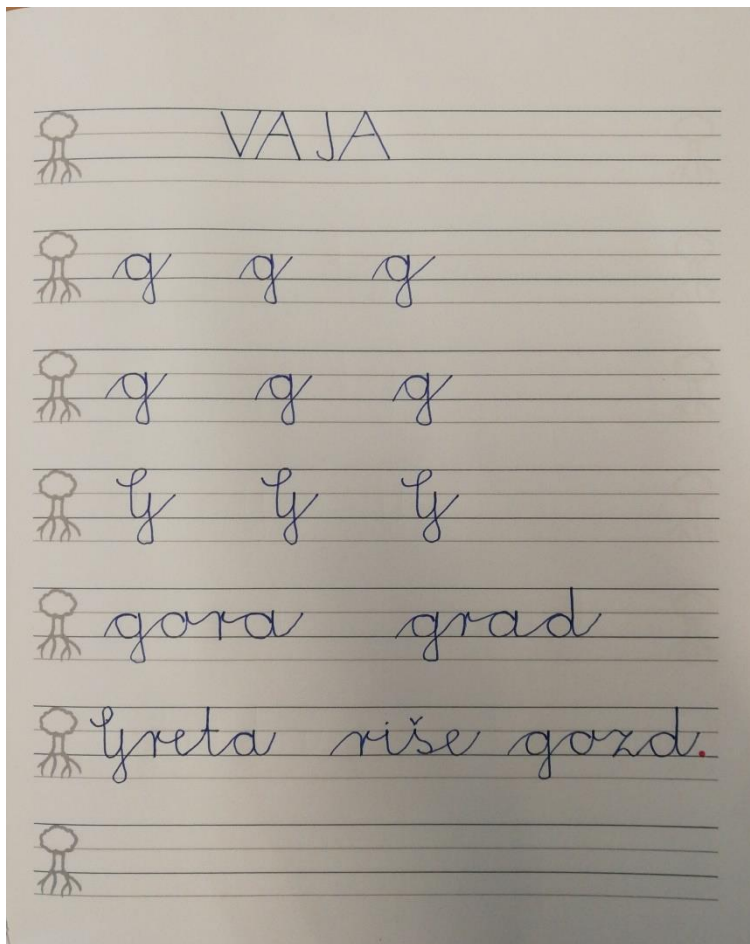 VAJA
g g g
g g g
G G G
gora grad
Greta riše gozd.